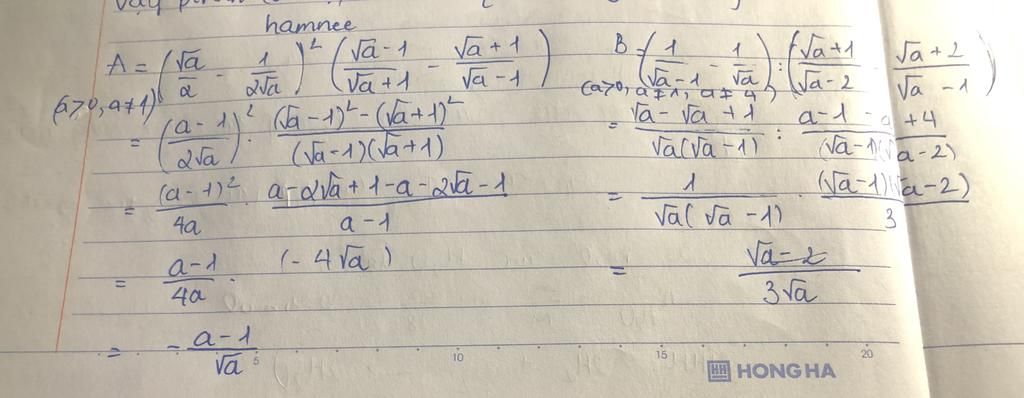 hamnee
A = (√a/2 - 1/2√a)² (√a-1/√a+1 - √a+1/√a-1)
(a>0, a≠1)
= (a-1/2√a)² · (√a-1)²-(√a+1)²/(√a-1)(√a+1)
= (a-1)²/4a · a-2√a+1-a-2√a-1/a-1
= a-1/4a · (-4√a)
= - a-1/√a
B = (1/√a-1 - 1/√a) : (√a+1/√a-2 - √a+2/√a-1)
(a>0, a≠1, a≠4)
= √a-√a+1/√a(√a-1) : a-1-a+4/(√a-1)(√a-2)
= 1/√a(√a-1) · (√a-1)(√a-2)/3
= √a-2/3√a
5 10 15 20
HH HONG HA